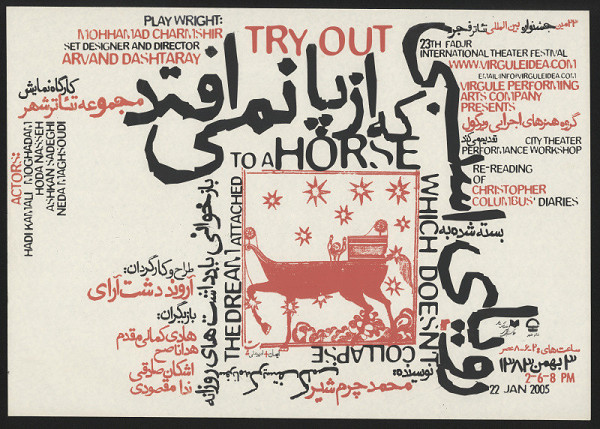 PLAY WRIGHT:
MOHHAMAD CHARMSHIR
SET DESIGNER AND DIRECTOR
ARVAND DASHTARAY
TRY OUT
۲۳مین جشنواره بین المللی تئاتر فجر
23TH FADJR
INTERNATIONAL THEATER FESTIVAL
WWW.VIRGULEIDEA.COM
EMAIL:INFO@VIRGULEIDEA.COM
VIRGULE PERFORMING
ARTS COMPANY
PRESENTS
گروه هنرهای اجرایی ویرگول
تقدیم می کند
CITY THEATER
PERFORMANCE WORKSHOP
RE-READING
OF
CHRISTOPHER
COLUMBUS' DIARIES
کارگاه نمایش
مجموعه تئاتر شهر
ACTORS:
HADI KAMALI MOGHADAM
HODA NASSEH
ASHKAN SADEGHI
NEDA MAGHSOUDI
رویای
بسته شده به
اسبی
که از پا نمی افتد
THE DREAM ATTACHED
TO A HORSE
WHICH DOESN'T
COLLAPSE
بازخوانی یادداشت های روزانه
طراح و کارگردان:
آروند دشت آرای
بازیگران:
هادی کمالی مقدم
هدا ناصح
اشکان صادقی
ندا مقصودی
نویسنده:
محمد چرم شیر
ساعت های ۲-۶-۸ عصر
۳ بهمن ۱۳۸۳
2-6-8 PM
22 JAN 2005